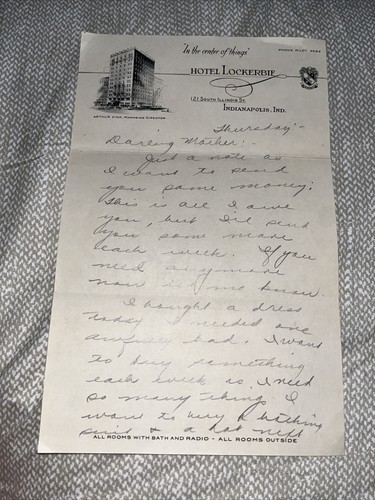 "In the center of things"
PHONE RILEY 4564
HOTEL LOCKERBIE
121 SOUTH ILLINOIS ST.
INDIANAPOLIS, IND.
ARTHUR ZINK, MANAGING DIRECTOR
Thursday:-
Darling Mother:-
Just a note as
I want to send
you some money.
This is all I owe
you, but I'll send
you some more
each week. If you
need any more
now let me know.
I bought a dress
today I needed one
awfully bad. I want
to buy something
each week as I need
so many things. I
want to buy a bathing
suit & a hat next
ALL ROOMS WITH BATH AND RADIO - ALL ROOMS OUTSIDE